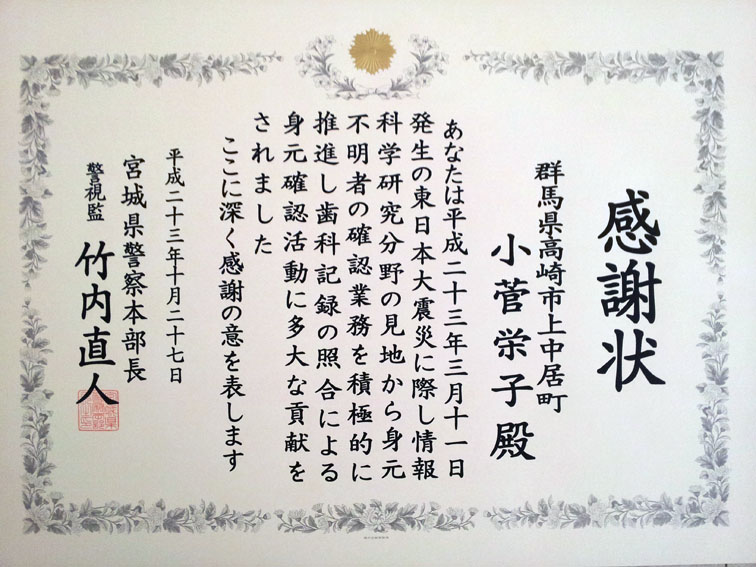 感謝状
群馬県高崎市上中居町
小菅栄子殿
あなたは平成二十三年三月十一日
発生の東日本大震災に際し情報
科学研究分野の見地から身元
不明者の確認業務を積極的に
推進し歯科記録の照合による
身元確認活動に多大な貢献を
されました
ここに深く感謝の意を表します
平成二十三年十月二十七日
宮城県警察本部長
警視監 竹内直人